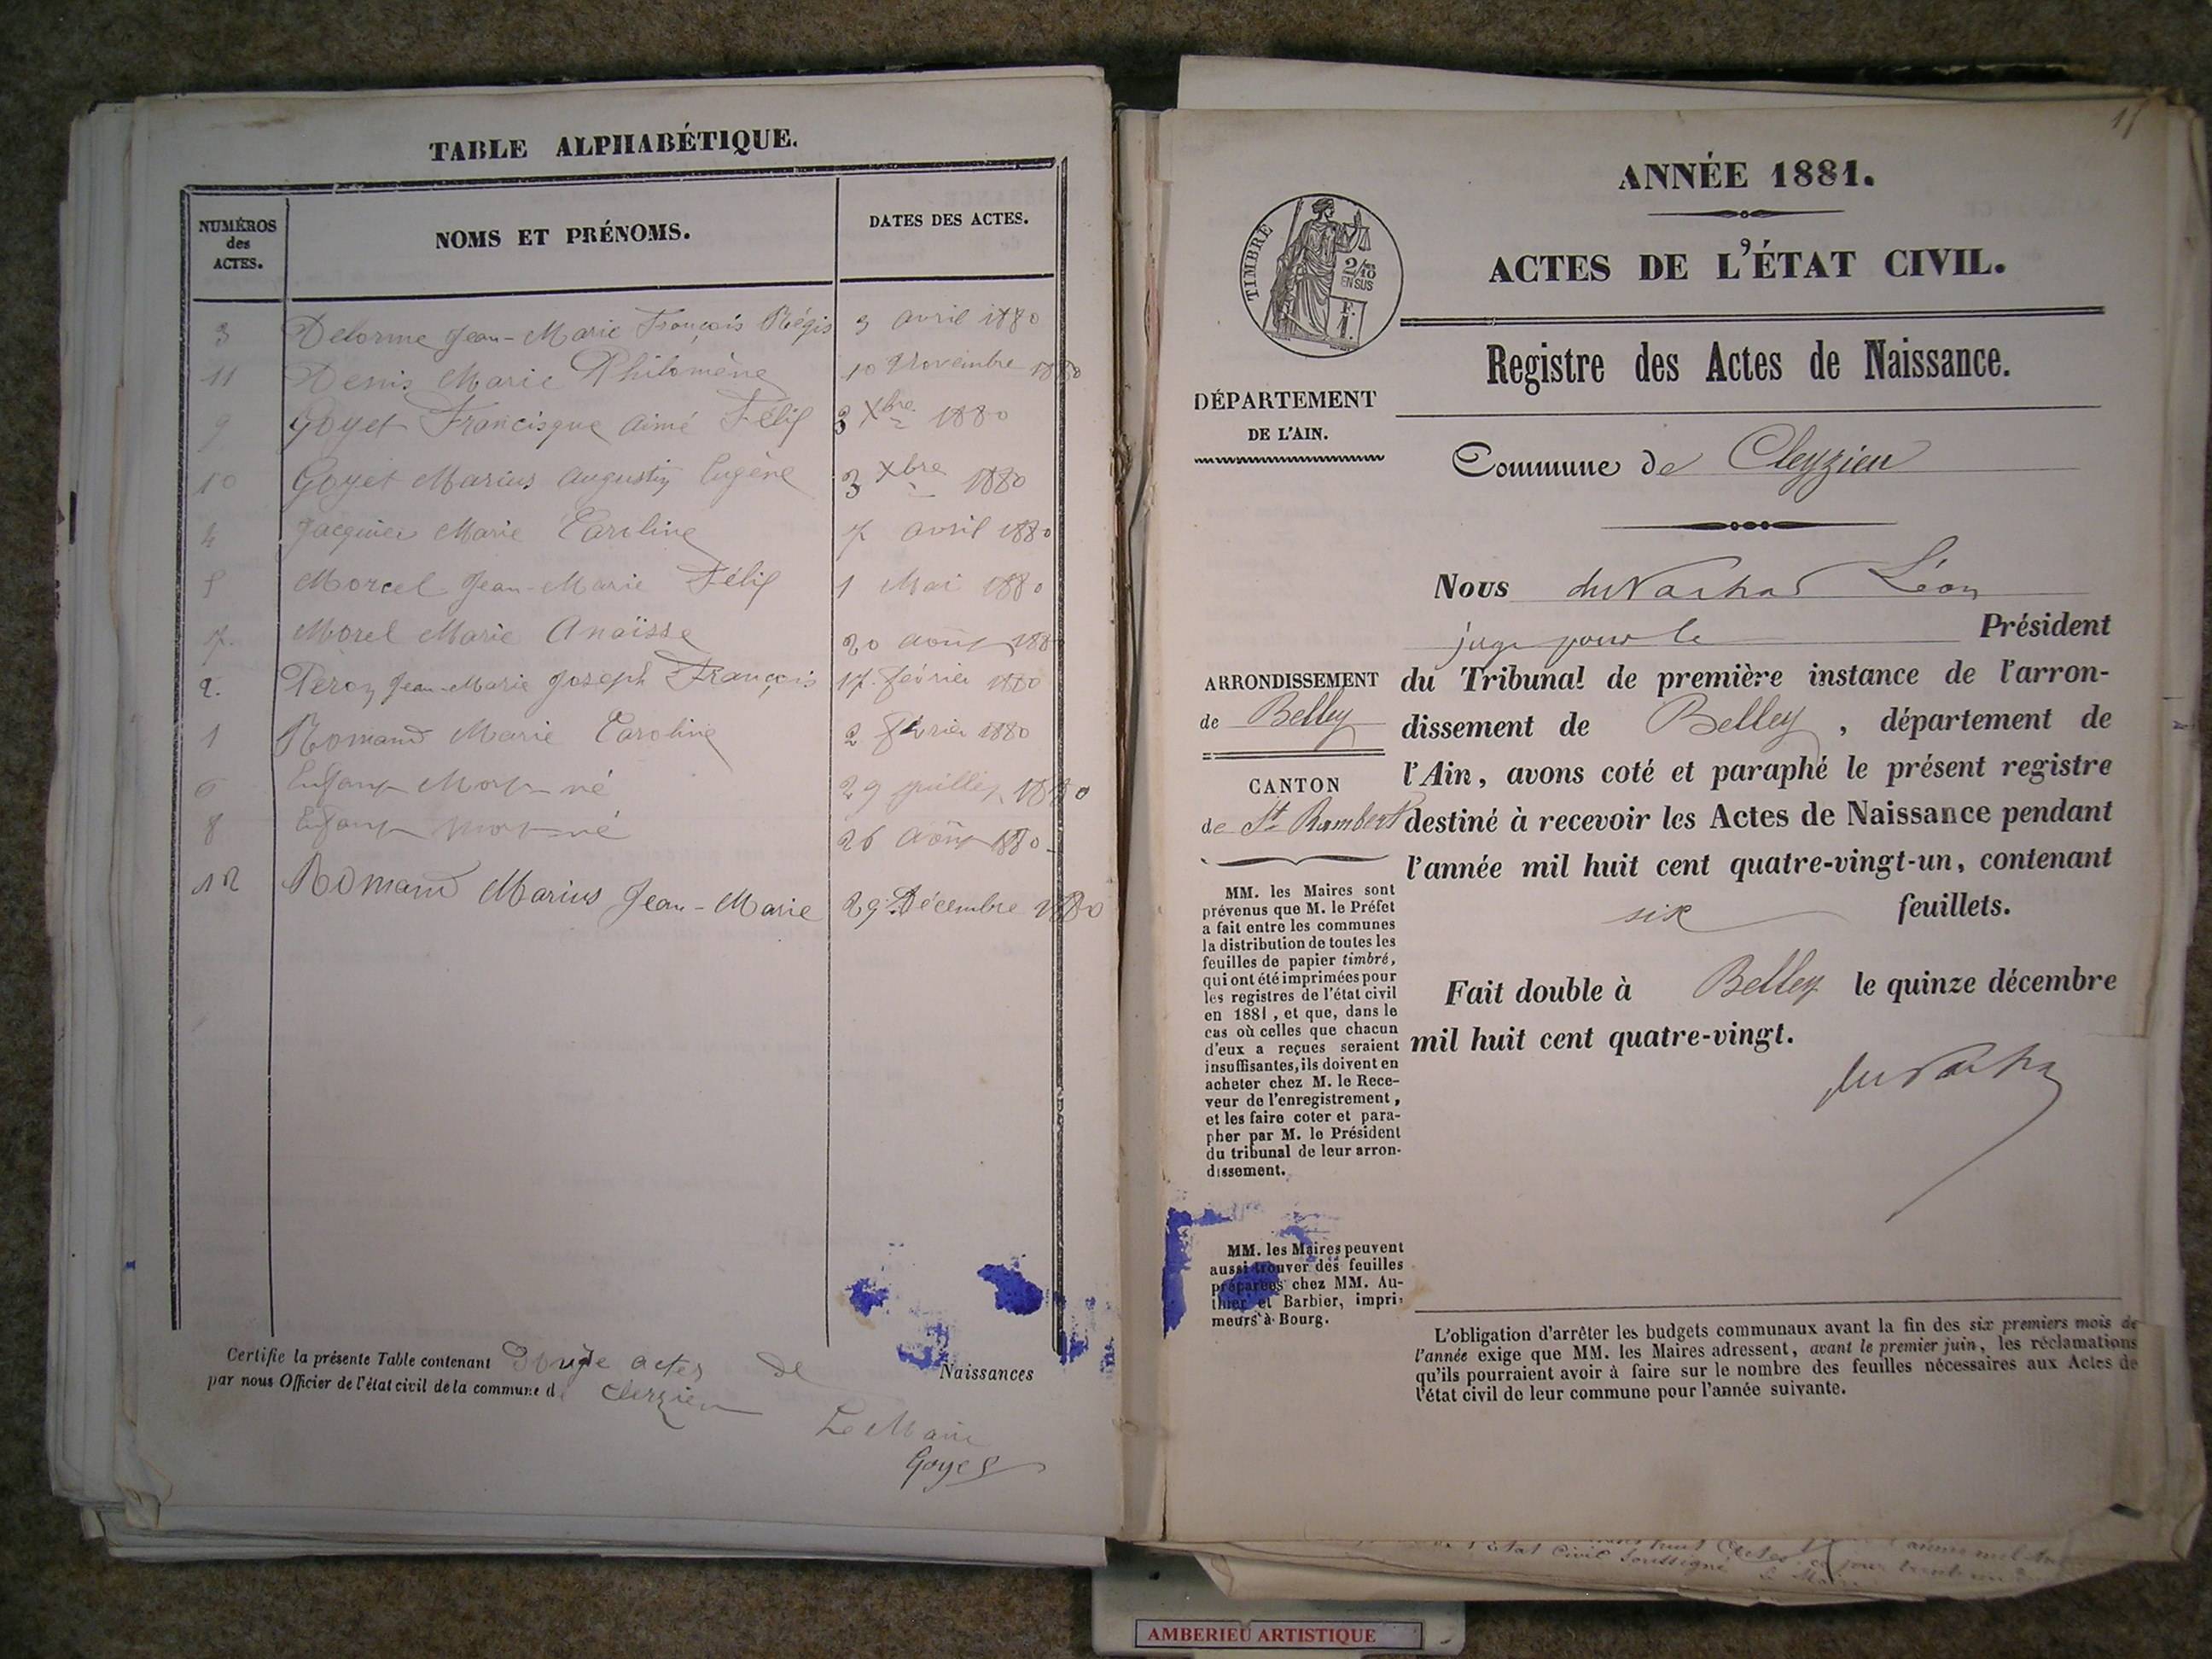 TABLE ALPHABÉTIQUE.
NUMÉROS des ACTES. NOMS ET PRÉNOMS. DATES DES ACTES.
3 Delorme Jean-Marie François Régis 3 avril 1880
11 Denis Marie Philomène 10 Novembre 1880
9 Goyet Francisque Aimé Félix 3 Xbre 1880
10 Goyet Marius Augustin Eugène 3 Xbre 1880
4 Jacquier Marie Caroline 7 avril 1880
5 Morcel Jean-Marie Félix 1 Mai 1880
7. Morel Marie Anaïsse 20 août 1880
2. Péroz Jean-Marie Joseph François 17 février 1880
1 Romand Marie Caroline 2 février 1880
6 Enfant Mort-né 29 juillet 1880
8 Enfant mort-né 26 août 1880
12 Romand Marius Jean-Marie 29 Décembre 1880
Certifie la présente Table contenant Douze actes de Naissances
par nous Officier de l'état civil de la commune de Cleyzieu
Le Maire
Goyet
ANNÉE 1881.
ACTES DE L'ÉTAT CIVIL.
TIMBRE
2/10 EN SUS
F. 1.
Registre des Actes de Naissance.
DÉPARTEMENT
DE L'AIN.
Commune de Cleyzieu
Nous Léon
juge pour le Président
du Tribunal de première instance de l'arron-
dissement de Belley, département de
l'Ain, avons coté et paraphé le présent registre
destiné à recevoir les Actes de Naissance pendant
l'année mil huit cent quatre-vingt-un, contenant
six feuillets.
Fait double à Belley le quinze décembre
mil huit cent quatre-vingt.
ARRONDISSEMENT
de Belley
CANTON
de St Rambert
MM. les Maires sont
prévenus que M. le Préfet
a fait entre les communes
la distribution de toutes les
feuilles de papier timbré,
qui ont été imprimées pour
les registres de l'état civil
en 1881, et que, dans le
cas où celles que chacun
d'eux a reçues seraient
insuffisantes, ils doivent en
acheter chez M. le Rece-
veur de l'enregistrement,
et les faire coter et para-
pher par M. le Président
du tribunal de leur arron-
dissement.
MM. les Maires peuvent
aussi trouver des feuilles
préparées chez MM. Au-
thier et Barbier, impri-
meurs à Bourg.
L'obligation d'arrêter les budgets communaux avant la fin des six premiers mois de
l'année exige que MM. les Maires adressent, avant le premier juin, les réclamations
qu'ils pourraient avoir à faire sur le nombre des feuilles nécessaires aux Actes de
l'état civil de leur commune pour l'année suivante.
AMBERIEU ARTISTIQUE